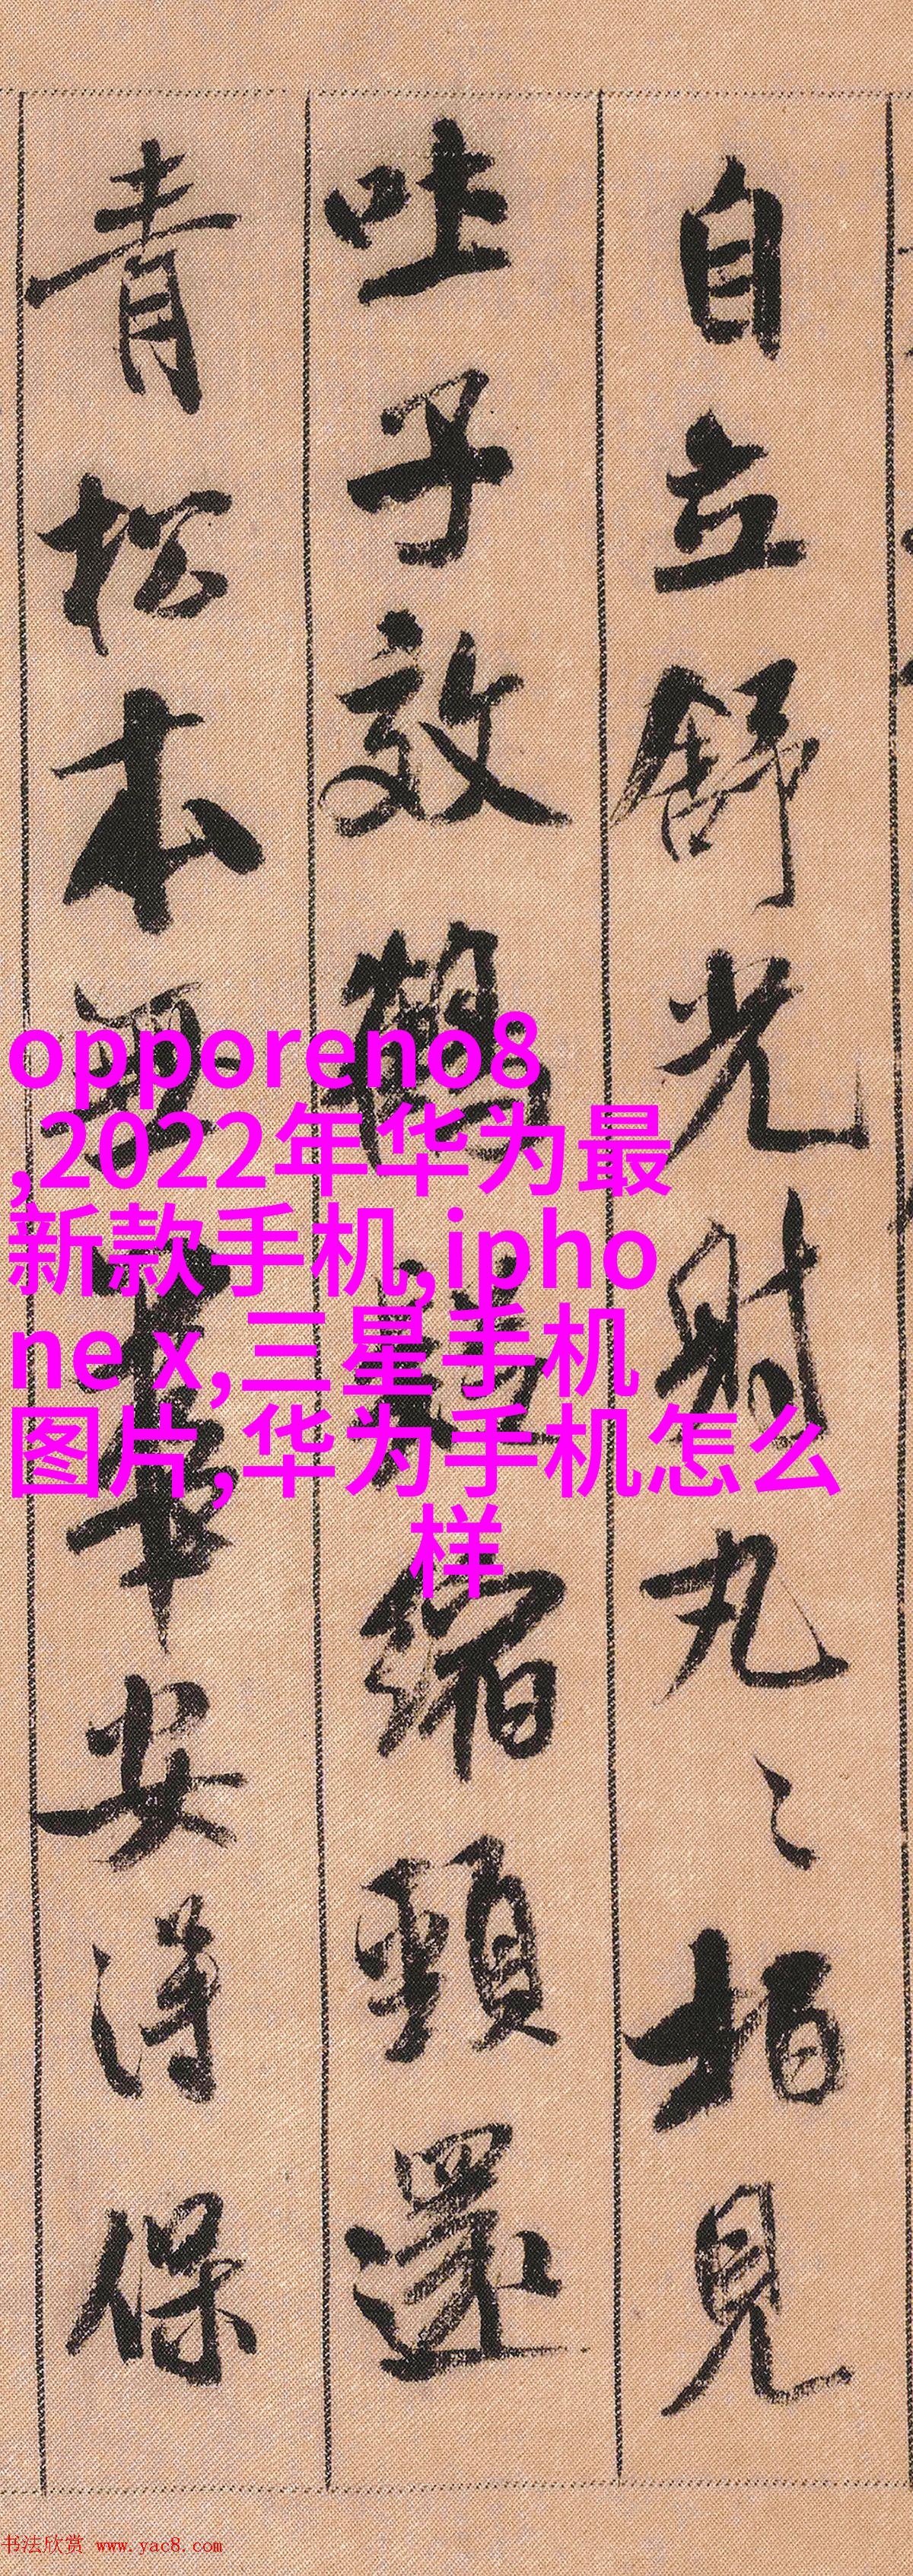 自立舒光射丸〻柏見
吐子效鶴疑縮頸還
青松本無華安得保
opporeno8
,2022年华为最
新款手机,ipho
ne x,三星手机
图片,华为手机怎么
样
书法欣赏 www.yac8.com